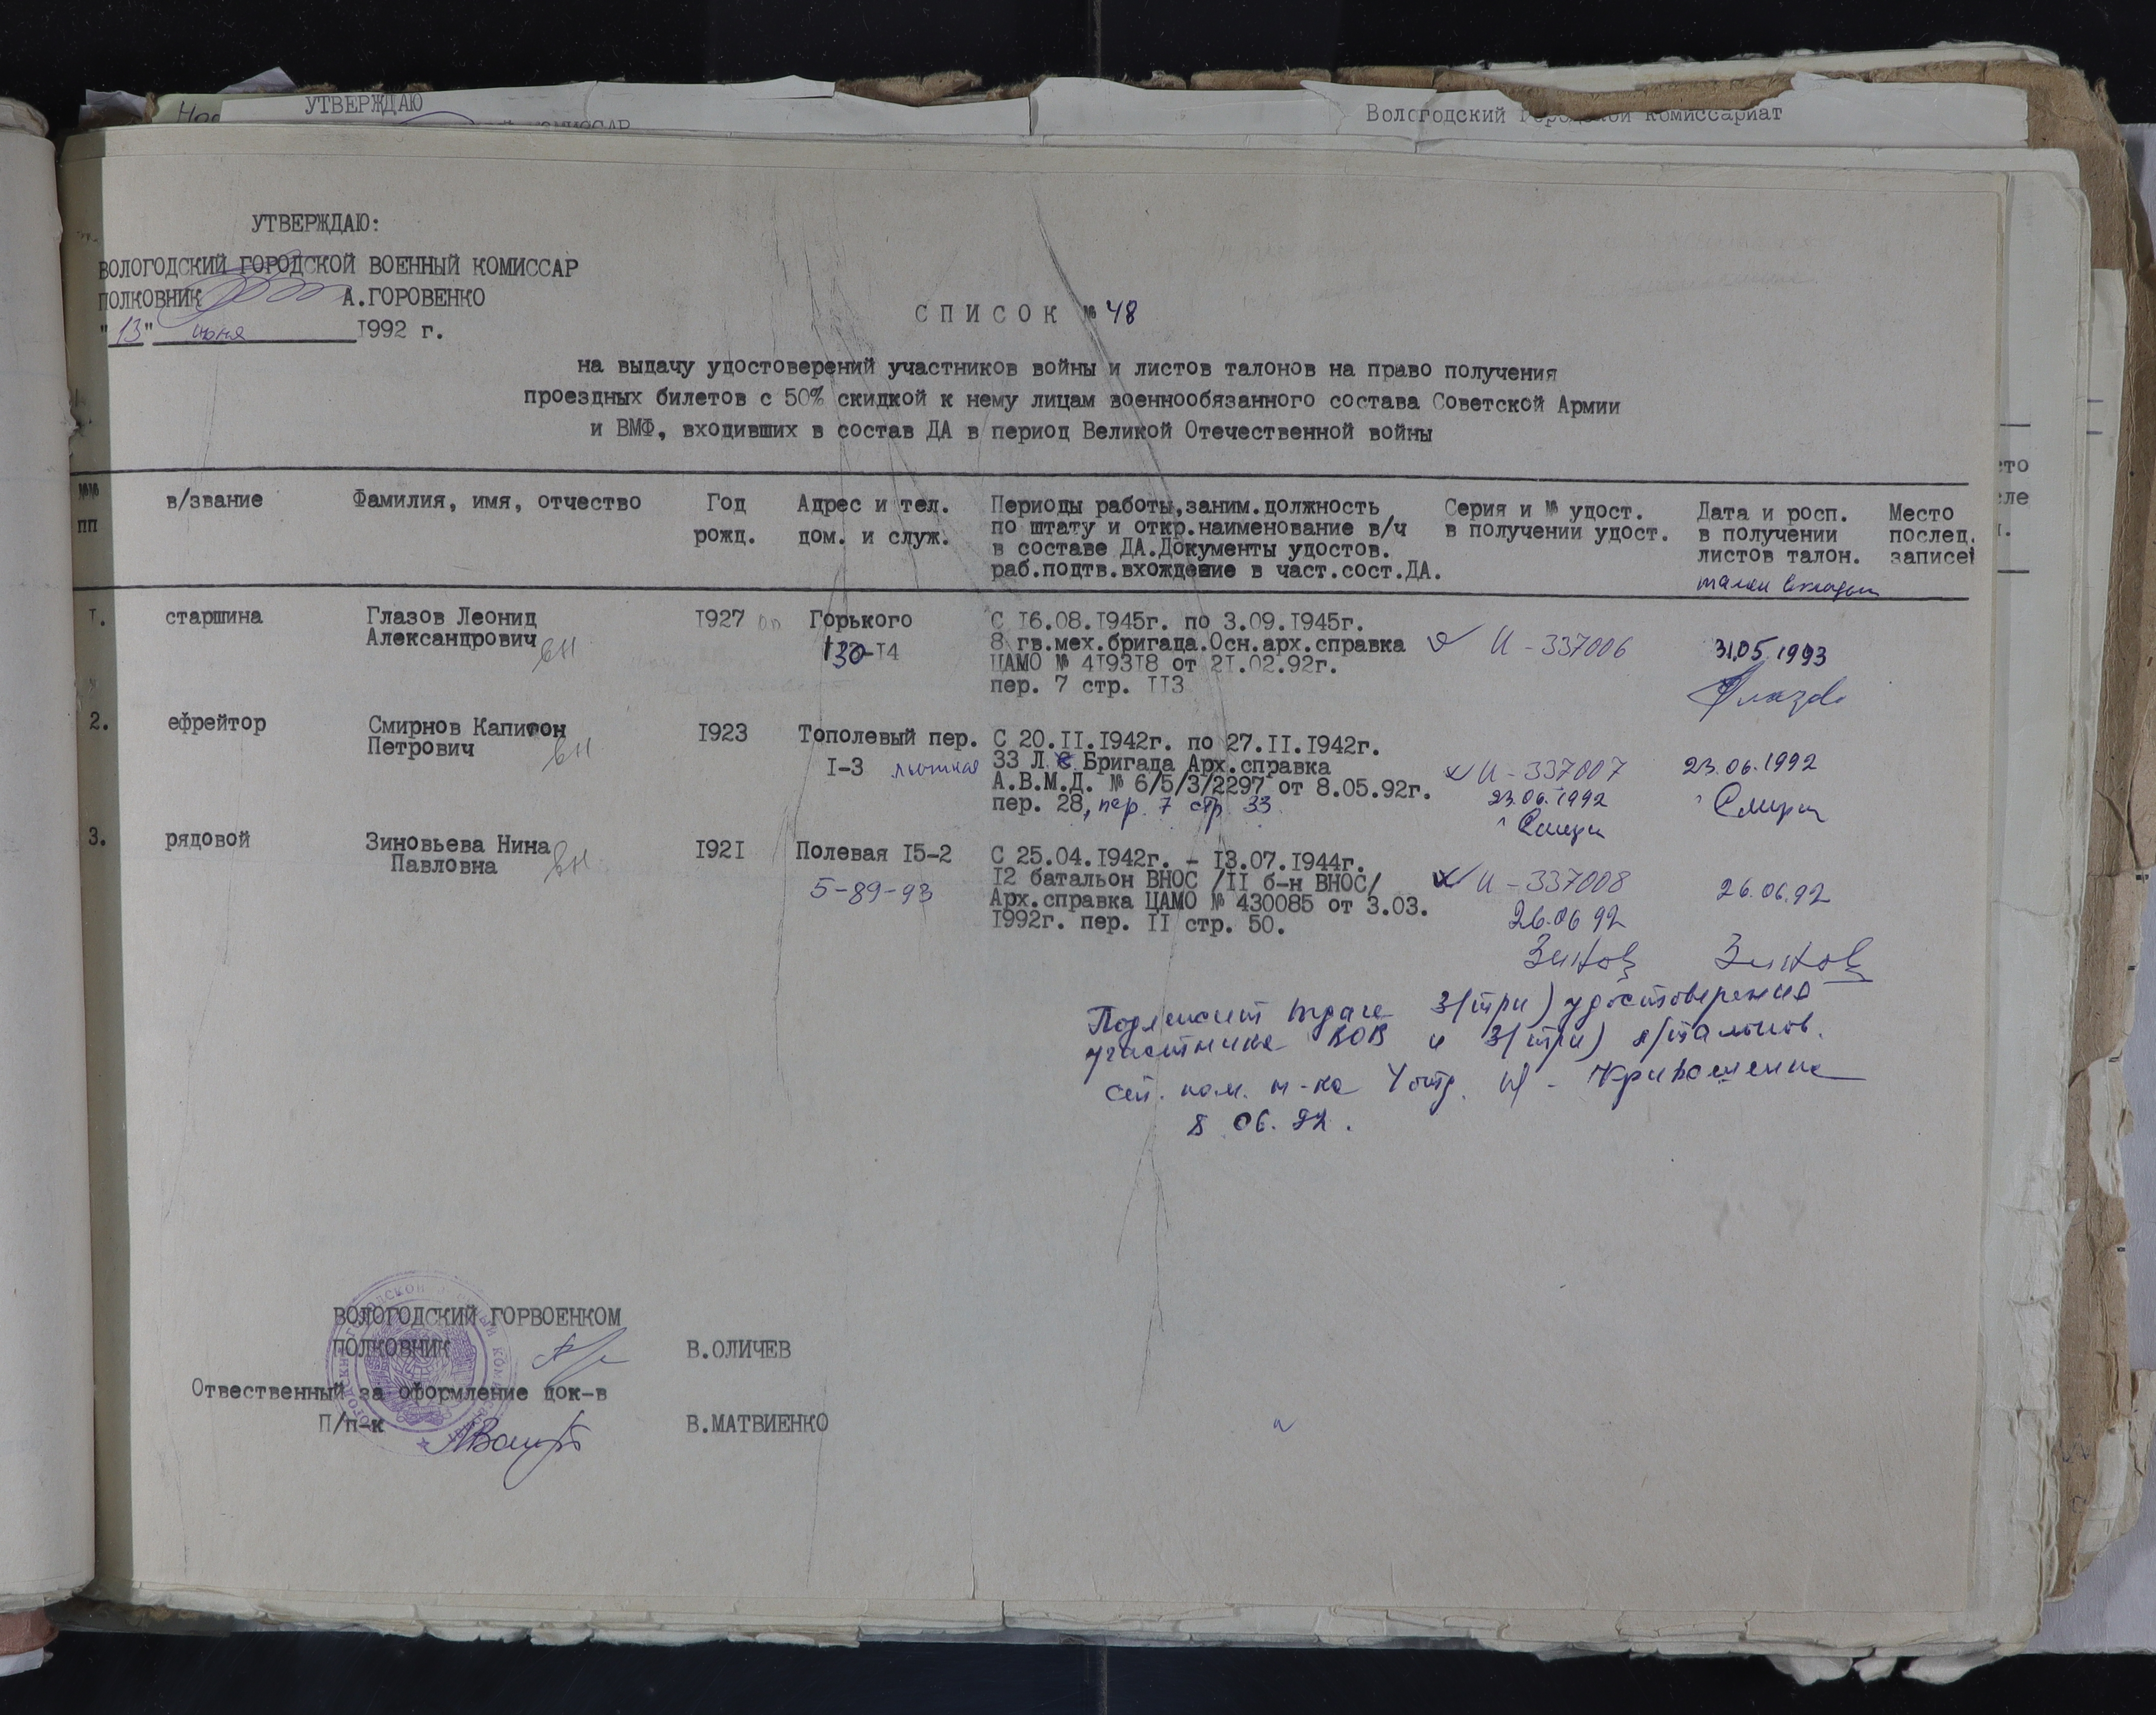 УТВЕРЖДАЮ
Вологодский городской комиссариат
УТВЕРЖДАЮ:
ВОЛОГОДСКИЙ ГОРОДСКОЙ ВОЕННЫЙ КОМИССАР
ПОЛКОВНИК А.ГОРОВЕНКО
"13" июня 1992 г.
СПИСОК № 48
на выдачу удостоверений участников войны и листов талонов на право получения
проездных билетов с 50% скидкой к нему лицам военнообязанного состава Советской Армии
и ВМФ, входивших в состав ДА в период Великой Отечественной войны
№№ пп
в/звание
Фамилия, имя, отчество
Год рожд.
Адрес и тел.
дом. и служ.
Периоды работы,заним.должность
по штату и откр.наименование в/ч
в составе ДА.Документы удостов.
раб.подтв.вхождение в част.сост.ДА.
Серия и № удост.
в получении удост.
Дата и росп.
в получении
листов талон.
Место
послед.
записей
1. старшина
Глазов Леонид
Александрович вн
1927
Горького
130-14
С 16.08.1945г. по 3.09.1945г.
8 гв.мех.бригада.Осн.арх.справка
ЦАМО № 419318 от 21.02.92г.
пер. 7 стр. 113
И - 337006
31.05.1993
2. ефрейтор
Смирнов Капитон
Петрович вн
1923
Тополевый пер.
1-3
С 20.11.1942г. по 27.11.1942г.
33 Л С Бригада Арх.справка
А.В.М.Д. № 6/5/3/2297 от 8.05.92г.
пер. 28, пер. 7 стр. 33
И - 337007
23.06.1992
Смирн
23.06.1992
Смирн
3. рядовой
Зиновьева Нина
Павловна вн
1921
Полевая 15-2
5-89-93
С 25.04.1942г. - 13.07.1944г.
12 батальон ВНОС /11 б-н ВНОС/
Арх.справка ЦАМО № 430085 от 3.03.
1992г. пер. 11 стр. 50.
И - 337008
26.06 92
Зинов
26.06.92
Зинов
Подлежит выдаче 3(три) удостоверения
участника ВОВ и 3(три) л/талонов.
ст. пом. н-ка 4 отд.
8 06. 92.
ВОЛОГОДСКИЙ ГОРВОЕНКОМ
ПОЛКОВНИК В.ОЛИЧЕВ
Отвественный за оформление док-в
П/п-к В.МАТВИЕНКО